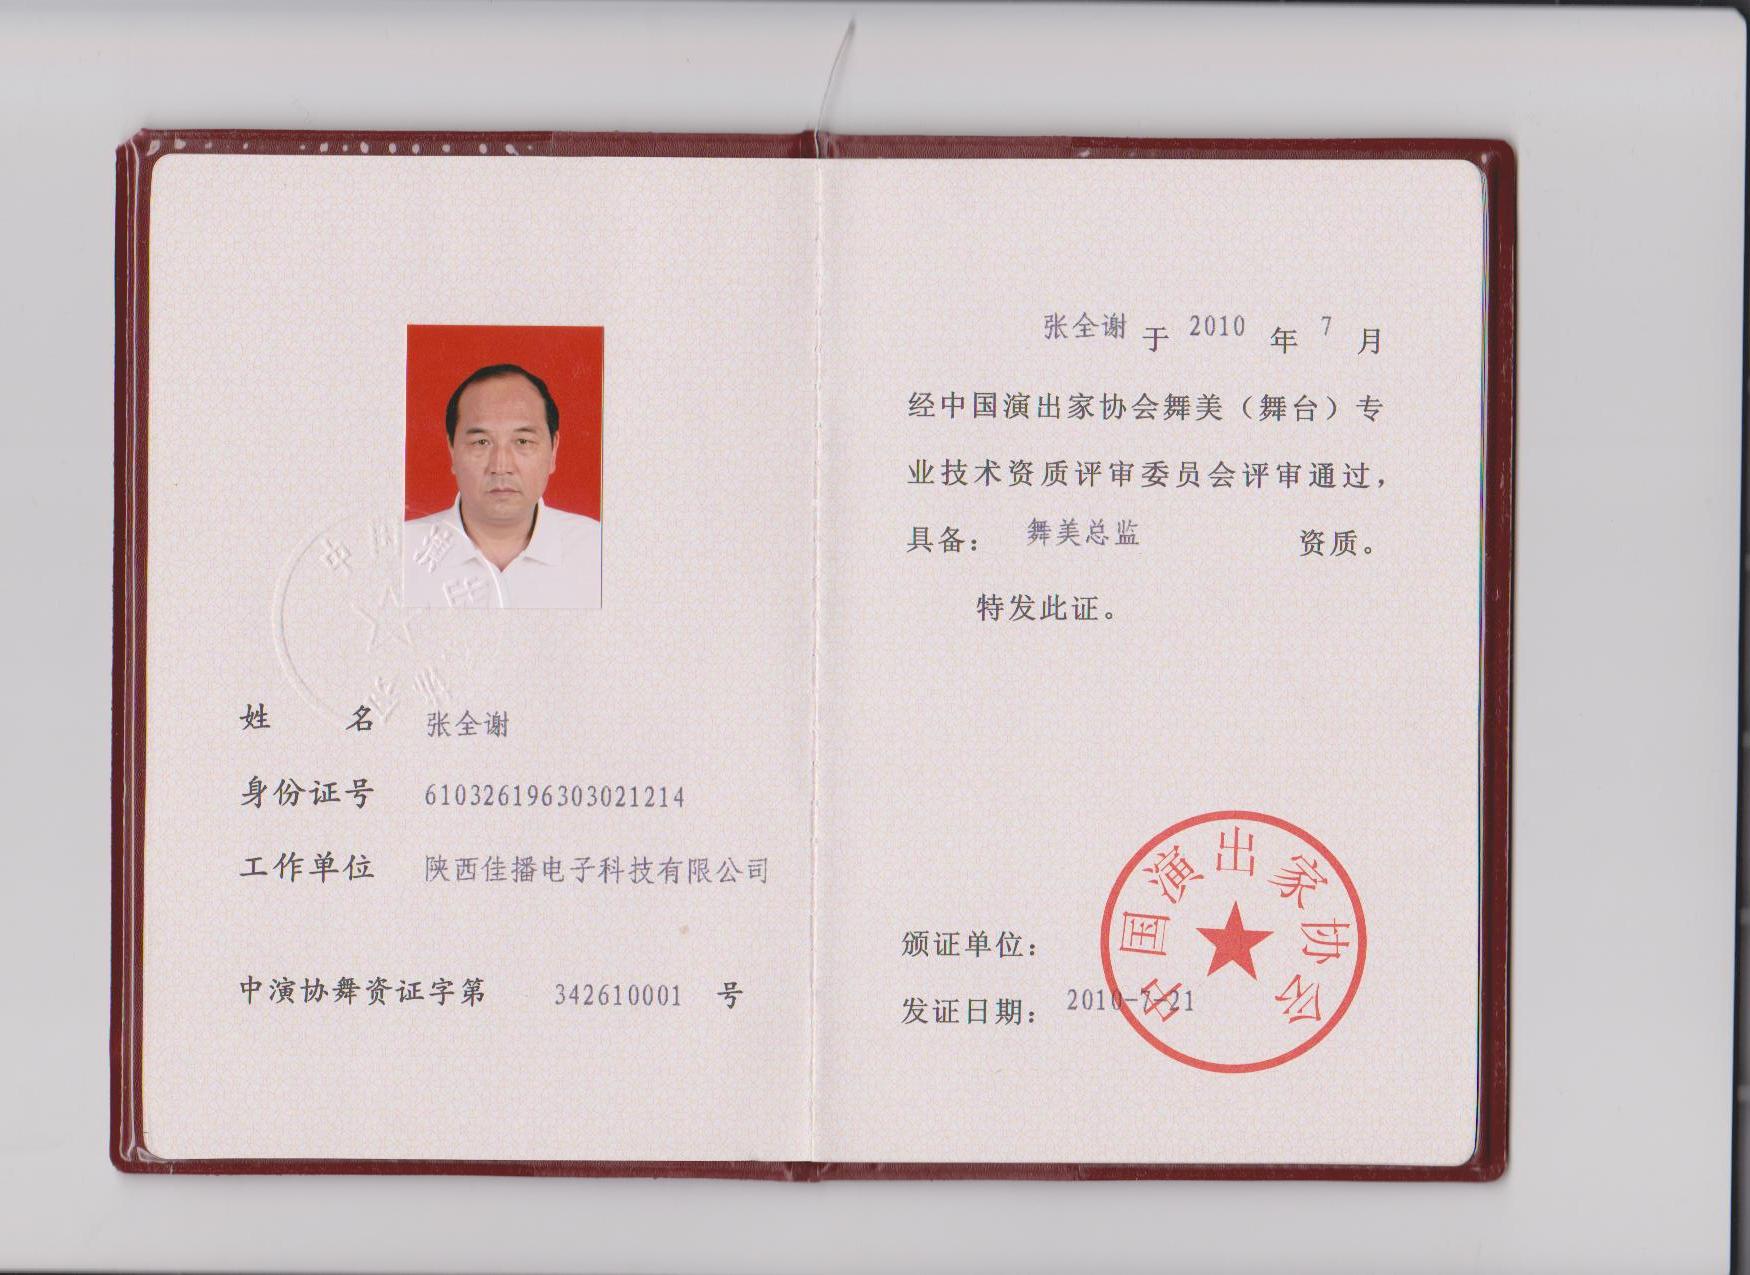 中国演出家协会
姓 名 张全谢
身份证号 610326196303021214
工作单位 陕西佳播电子科技有限公司
中演协舞资证字第 342610001 号
张全谢 于 2010 年 7 月
经中国演出家协会舞美（舞台）专
业技术资质评审委员会评审通过，
具备： 舞美总监 资质。
特发此证。
颁证单位：
发证日期： 2010-7-21
中国演出家协会